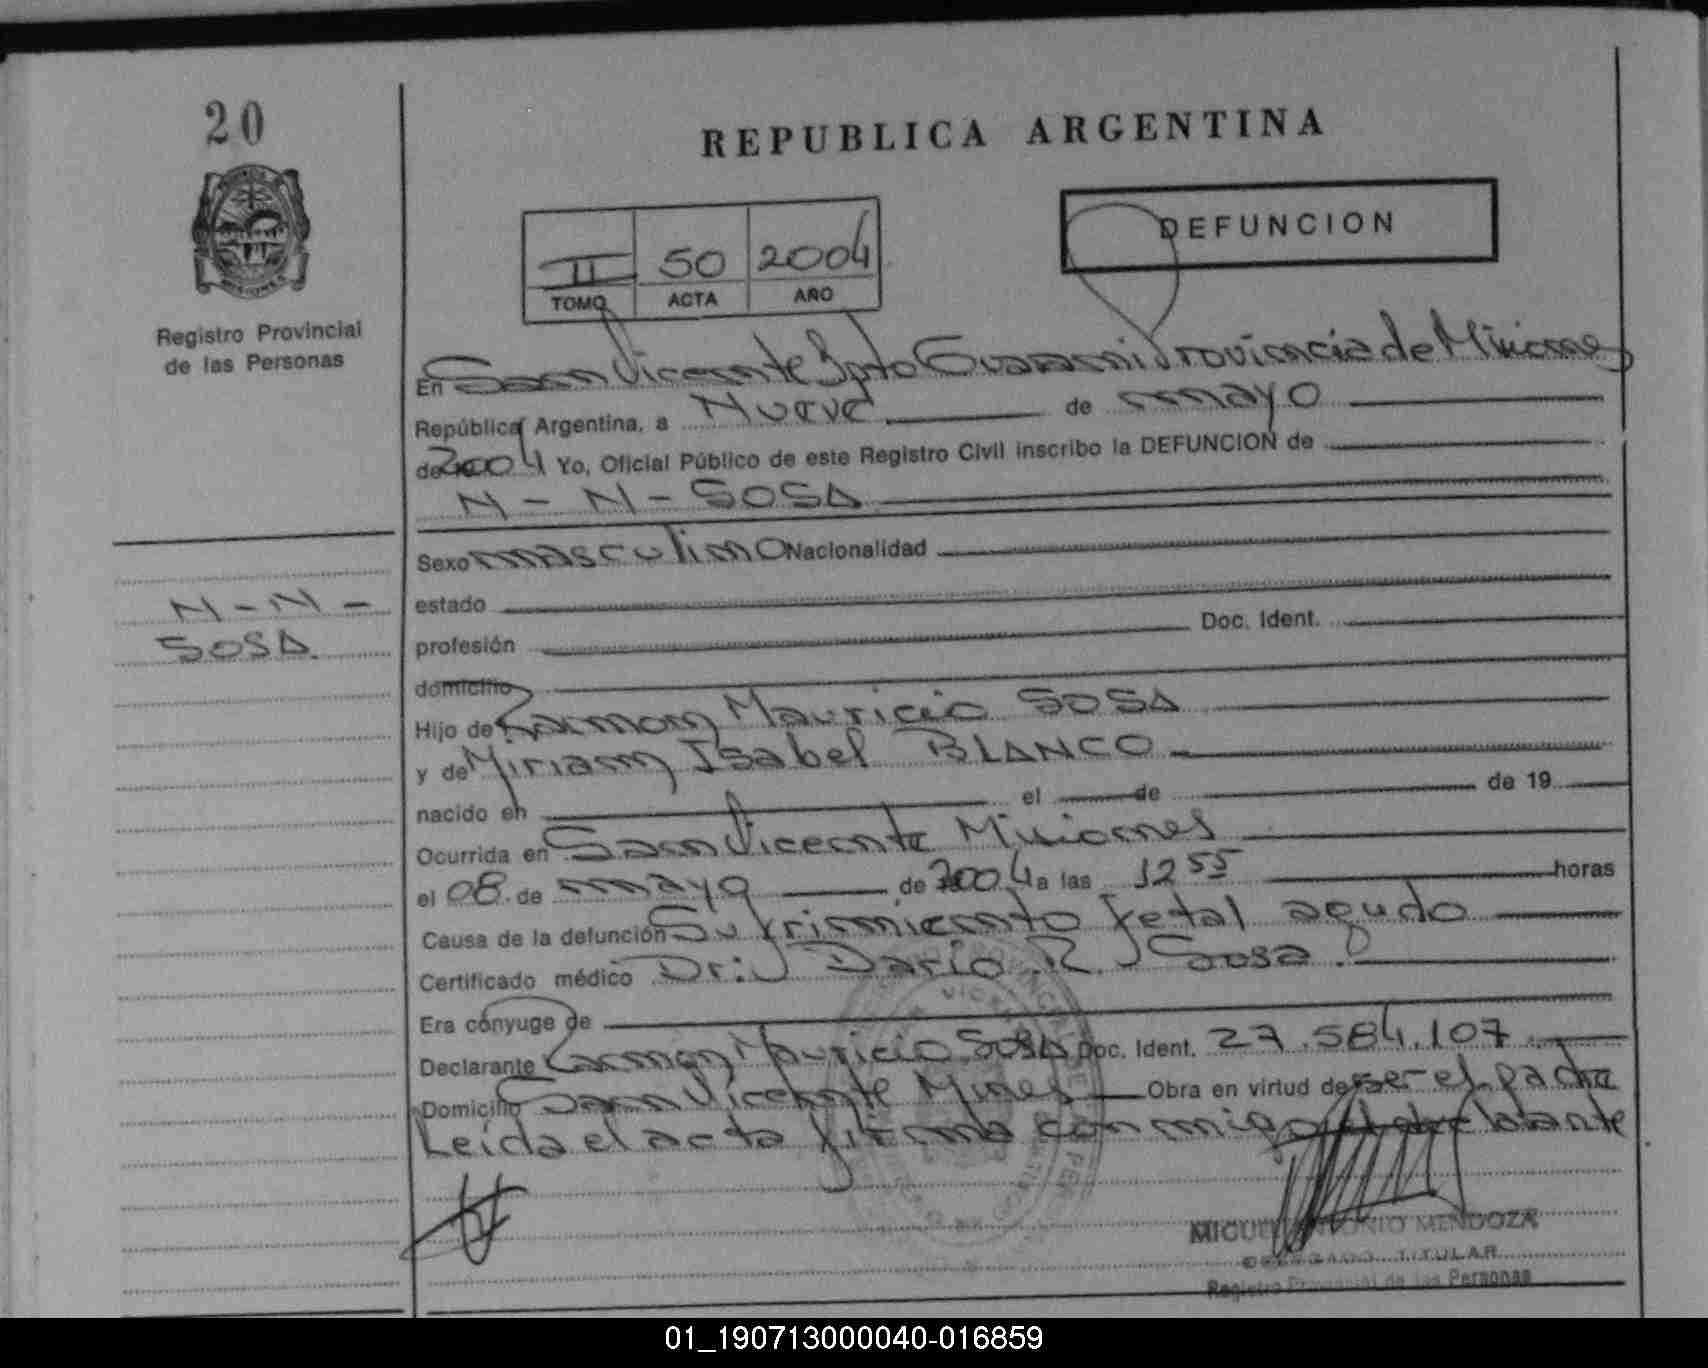 20
REPUBLICA ARGENTINA
DEFUNCION
II 50 2004
TOMO ACTA AÑO
MISIONES
Registro Provincial
de las Personas
En San Vicente Dpto Guarani Provincia de Misiones
República Argentina, a Nueve de mayo
de 2004 Yo, Oficial Público de este Registro Civil inscribo la DEFUNCION de
N - N - SOSA
Sexo masculino Nacionalidad
N - N -
SOSA
estado
profesión Doc. Ident.
domicilio
Hijo de Ramon Mauricio SOSA
y de Miriam Isabel BLANCO
nacido en el de de 19
Ocurrida en San Vicente Misiones
el 08 de mayo de 2004 a las 12 55 horas
Causa de la defunción Sufrimiento fetal agudo
Certificado médico Dr: Dario R. Sosa
Era cónyuge de
Declarante Ramon Mauricio SOSA Doc. Ident. 27.584.107
Domicilio San Vicente Mnes Obra en virtud de ser el padre
Leida el acta firma conmigo el declarante
MIGUEL ANTONIO MENDOZA
DELEGADO TITULAR
Registro Provincial de las Personas
01_190713000040-016859